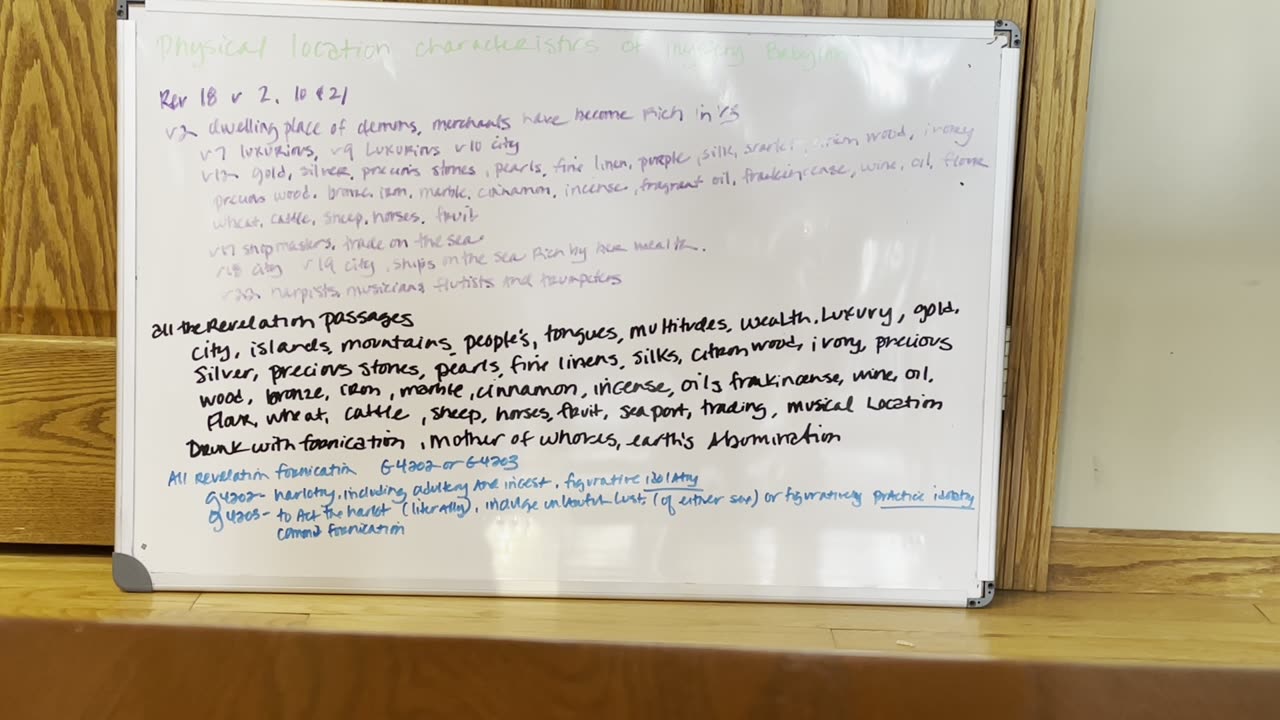 Physical location characteristics of mystery Babylon
Rev 18 v 2, 10 & 21
v2 dwelling place of demons, merchants have become Rich in v3
v7 luxurious, v9 Luxurious v10 city
v12 gold, silver, precious stones, pearls, fine linen, purple, silk, scarlet, wood, ivory
precious wood, bronze, iron, marble, cinnamon, incense, fragrant oil, frankincense, wine, oil,
wheat, cattle, sheep, horses, fruit
v17 shipmasters, trade on the sea
v18 city v19 city, ships on the sea Rich by her wealth.
v22 harpists, musicians, flutists and trumpeters
all the Revelation passages
city, islands, mountains, people's, tongues, multitudes, wealth, Luxury, gold,
Silver, precious stones, pearls, fine linens, silks, citron wood, ivory, precious
wood, bronze, iron, marble, cinnamon, incense, oils frankincense, wine, oil,
Flour, wheat, cattle, sheep, horses, fruit, seaport, trading, musical Location
Drunk with fornication, mother of whores, earth's Abomination
All Revelation fornication G4202 or G4203
G4202- harlotry, including adultery and incest, figurative idolatry
G4203- to Act the harlot (literally), indulge unlawful Lust, (of either sex) or figuratively practice idolatry
commit fornication